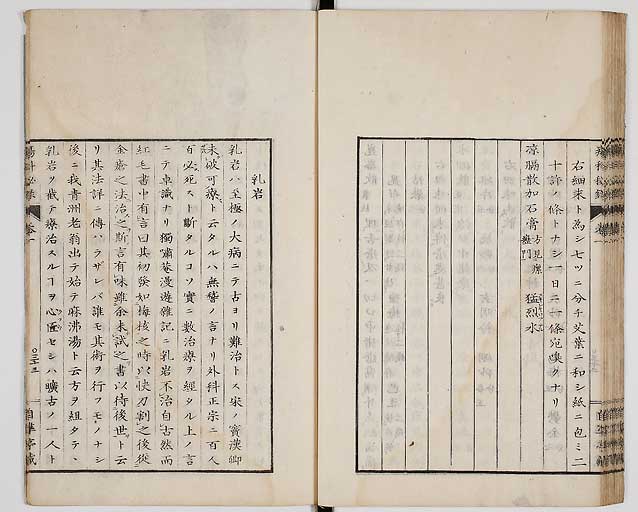 右細末ト為シ七ツニ分チ艾葉ニ和シ紙ニ包ミ二
十許ノ條トナシ一日ニ一條宛嗅クナリ
涼膈散加石膏 方見 猛烈水
乳岩
乳岩ハ至極ノ大病ニテ古ヨリ難治トス宋ノ竇漢卿
未破可療ト云タルハ無稽ノ言ナリ外科正宗ニ百人
百必死スト斷タルコソ實ニ數治療ヲ經タル上ノ言
ニテ卓識ナリ獨嘯菴漫遊雜記ニ乳岩不治自古然而
紅毛書中有言曰其初發如梅核之時以快刀割之後從
金瘡之法治之斯言有味雖余未試之書以待後世ト云
リ其法詳ニ傳ハラザレバ誰モ其術ヲ行フモノナシ
後ニ我青洲老翁出テ始テ麻沸湯ト云方ヲ組タテ、
乳岩ヲ截テ療治スルヿヲ心匠セシハ曠古ノ一人ト
瘍科秘録
卷一